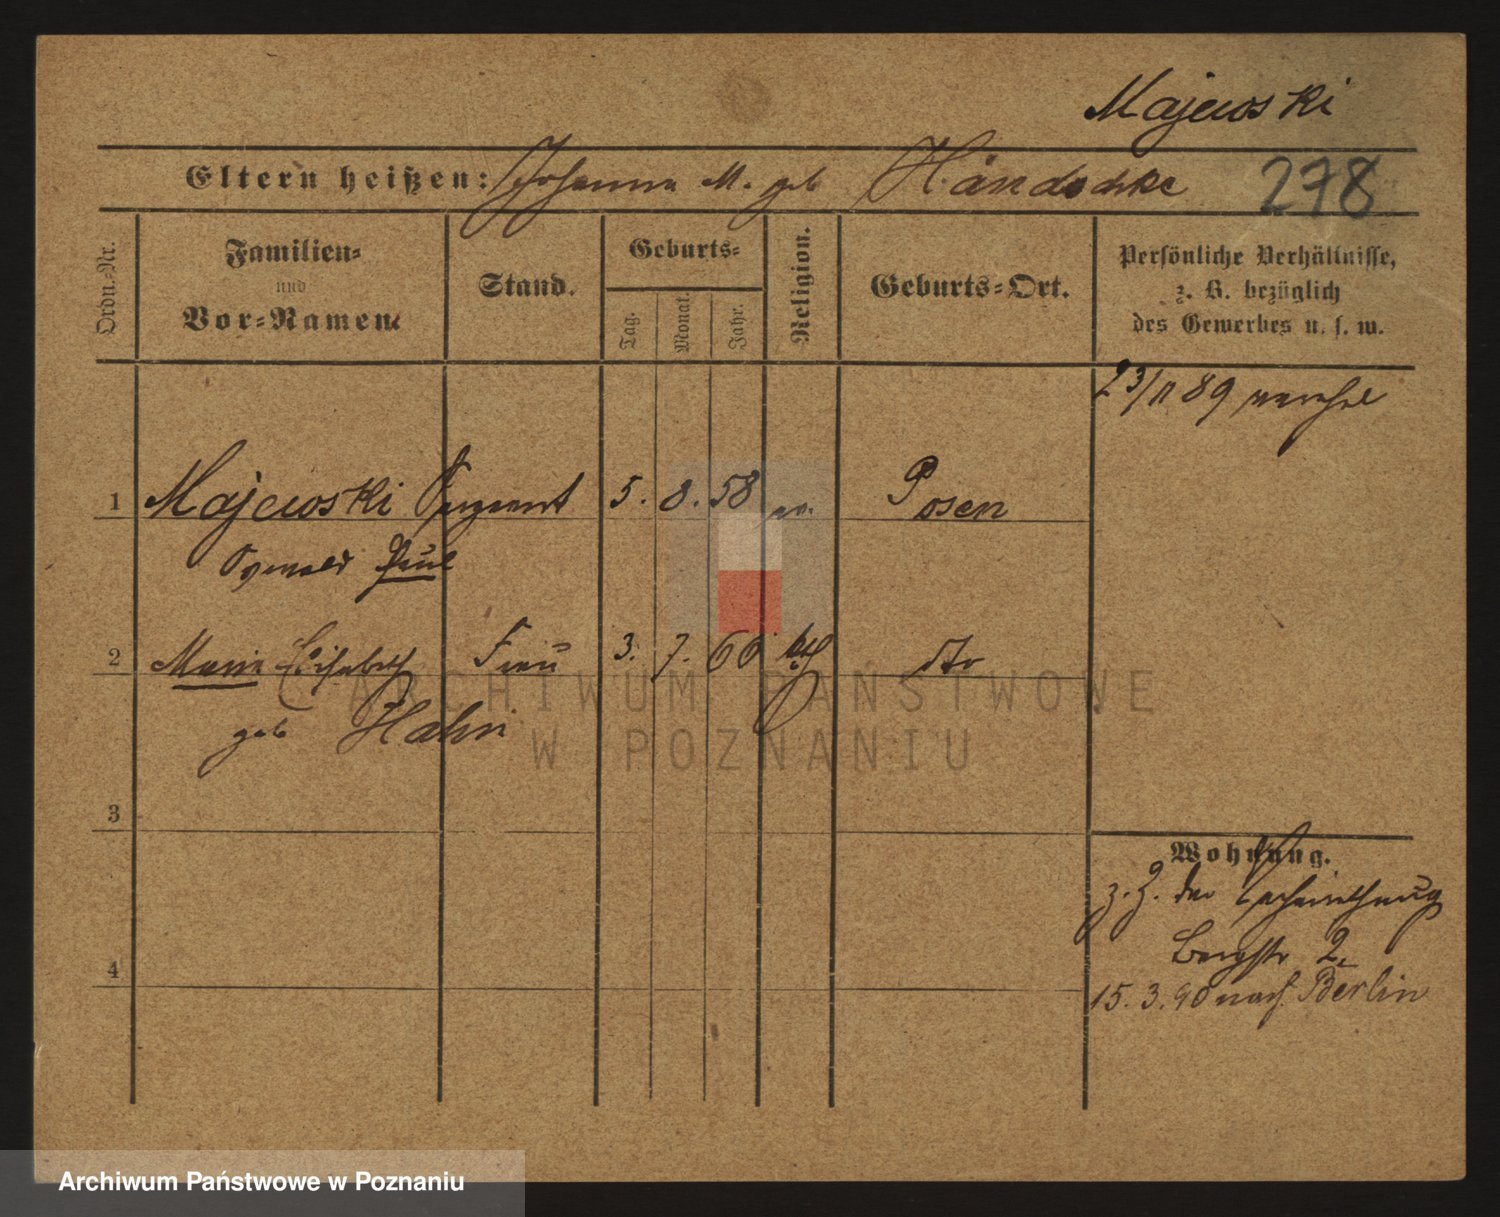 Majewski
Eltern heißen: Johann M. geb Händschke 278
Ordn.-Nr.
Familien- und Vor-Namen.
Stand.
Geburts-
Tag. Monat. Jahr.
Religion.
Geburts-Ort.
Persönliche Verhältnisse,
z. B. bezüglich
des Gewerbes u. s. w.
23/11 89
1 Majewski Sergeant 5. 8. 58 ev. Posen
Oswald Paul
2 Marie Elisabeth Frau 3. 7. 66 kth dto
geb Hahn
3
Wohnung.
z. Z. der
Bergstr 2.
4
15. 3. 90 nach Berlin
ARCHIWUM PAŃSTWOWE
W POZNANIU
Archiwum Państwowe w Poznaniu